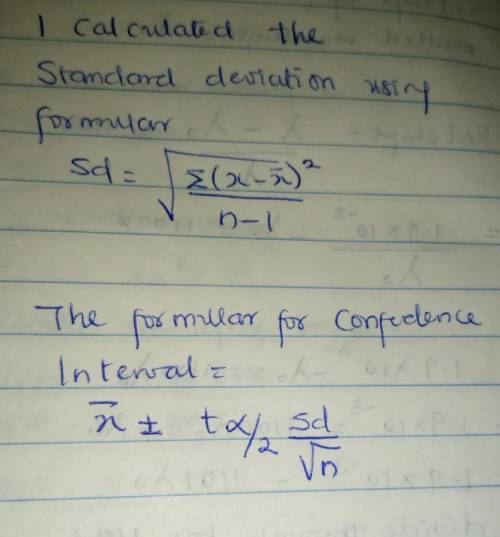 I calculated the
Standard deviation using
formular
Sd = √(Σ(x-x̄)²/n-1)
The formular for Confedence
Interval =
x̄ ± tα/2 Sd/√n